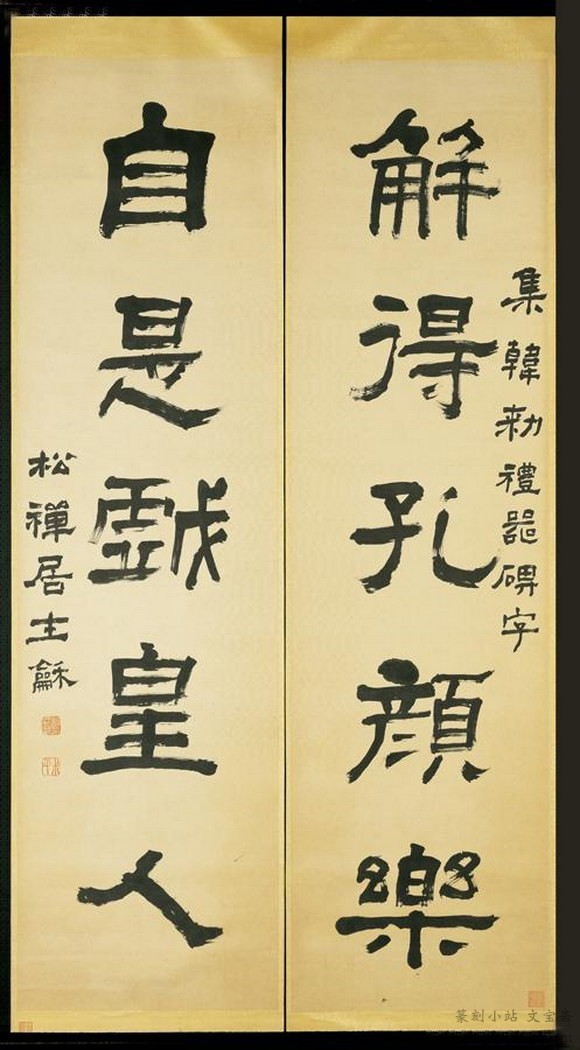 集韓勑禮器碑字
解得孔顏樂
自是戲皇人
松禪居士龢
篆刻小站 文宝